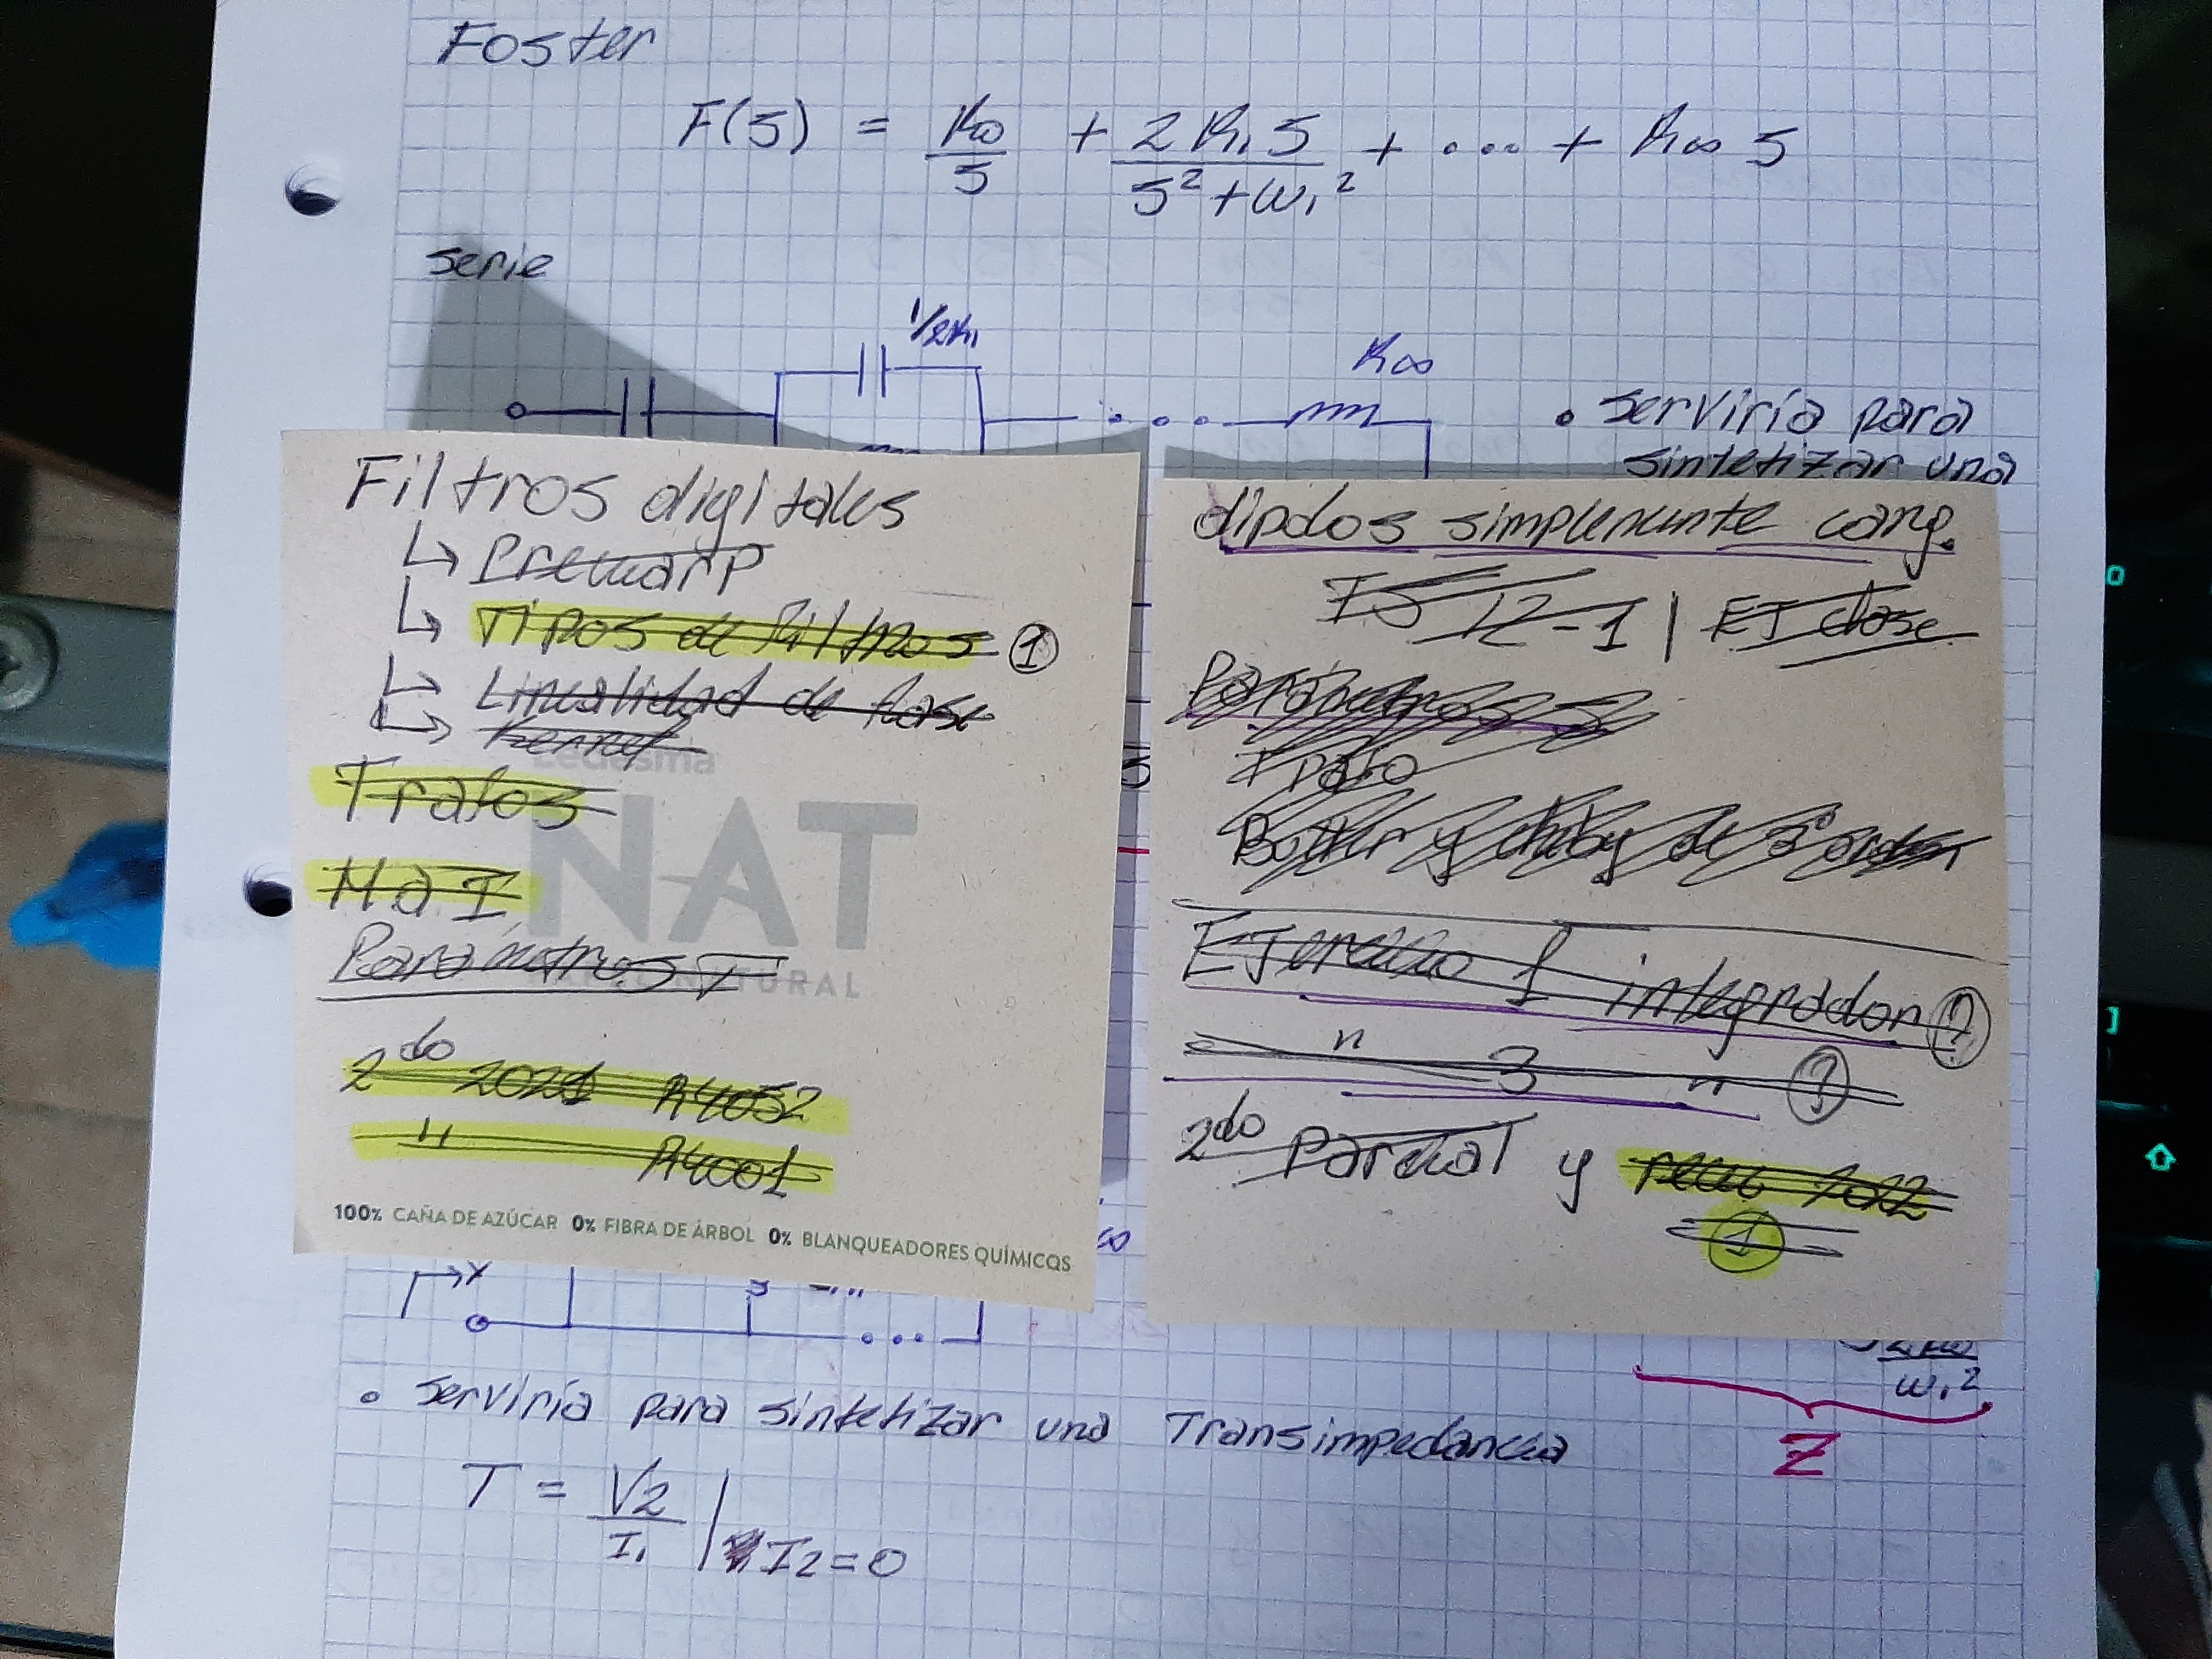 Foster
F(s) = K₀/s + 2K₁s/(s²+ω₁²) + ... + K∞ s
serie
1/2K₁
K∞
• serviría para
sintetizar una
Filtros digitales
↳ Prewarp
↳ Tipos de filtros ①
↳ Linealidad de fase
↳ Kernel
Trafos
MaI
Parámetros T
2do 2021 R4052
" R4001
Ledesma
NAT
NATURAL
100% CAÑA DE AZÚCAR 0% FIBRA DE ÁRBOL 0% BLANQUEADORES QUÍMICOS
dipolos simplemente carg.
12-1 | EJ clase
Parámetros S
Butter y cheby de 3° orden
Ejercicio 1 integrador ?
" 3 " ?
2do parcial y recu 2022
①
Y
ω₁²
Z
• serviría para sintetizar una Transimpedancia
T = V2/I₁ | I2=0